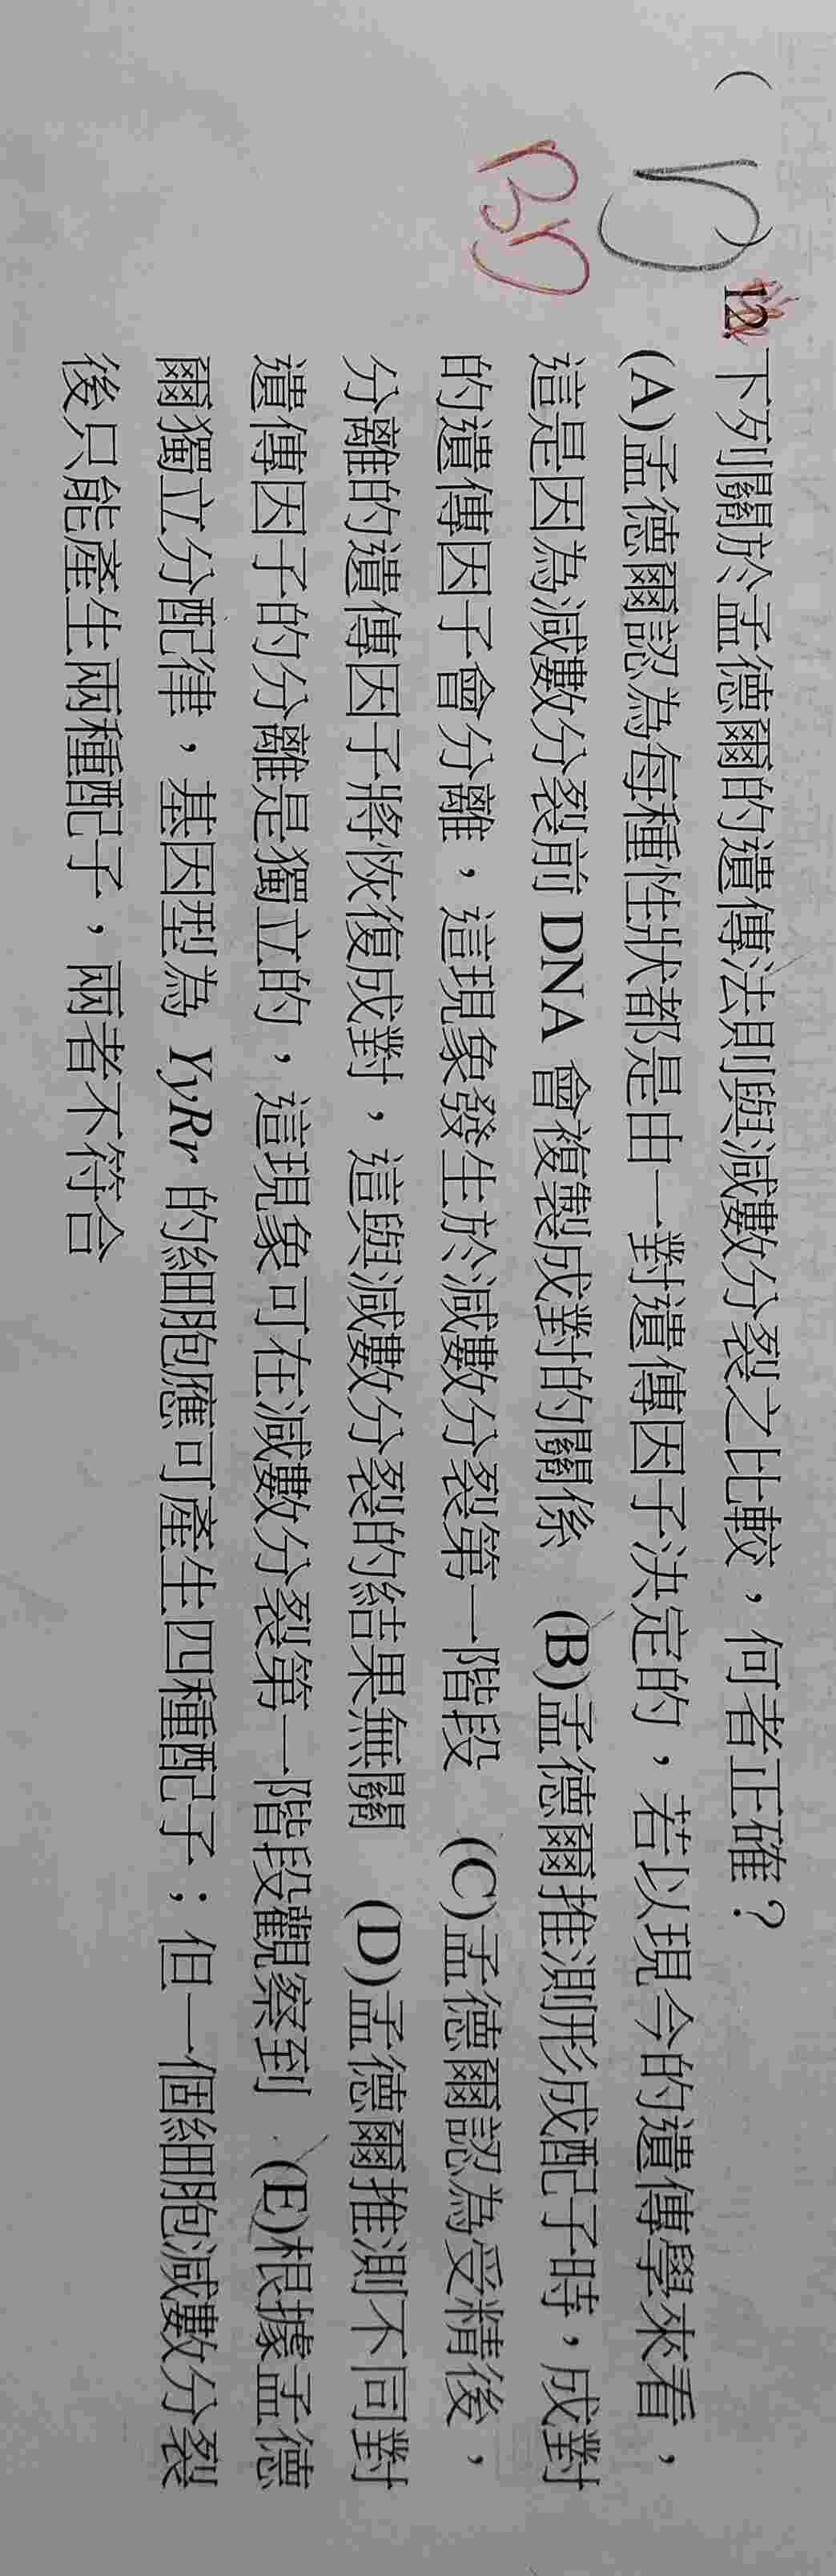 ( D ) 12.下列關於孟德爾的遺傳法則與減數分裂之比較，何者正確？
BD
(A)孟德爾認為每種性狀都是由一對遺傳因子決定的，若以現今的遺傳學來看，
這是因為減數分裂前 DNA 會複製成對的關係 (B)孟德爾推測形成配子時，成對
的遺傳因子會分離，這現象發生於減數分裂第一階段 (C)孟德爾認為受精後，
分離的遺傳因子將恢復成對，這與減數分裂的結果無關 (D)孟德爾推測不同對
遺傳因子的分離是獨立的，這現象可在減數分裂第一階段觀察到 (E)根據孟德
爾獨立分配律，基因型為 YyRr 的細胞應可產生四種配子；但一個細胞減數分裂
後只能產生兩種配子，兩者不符合